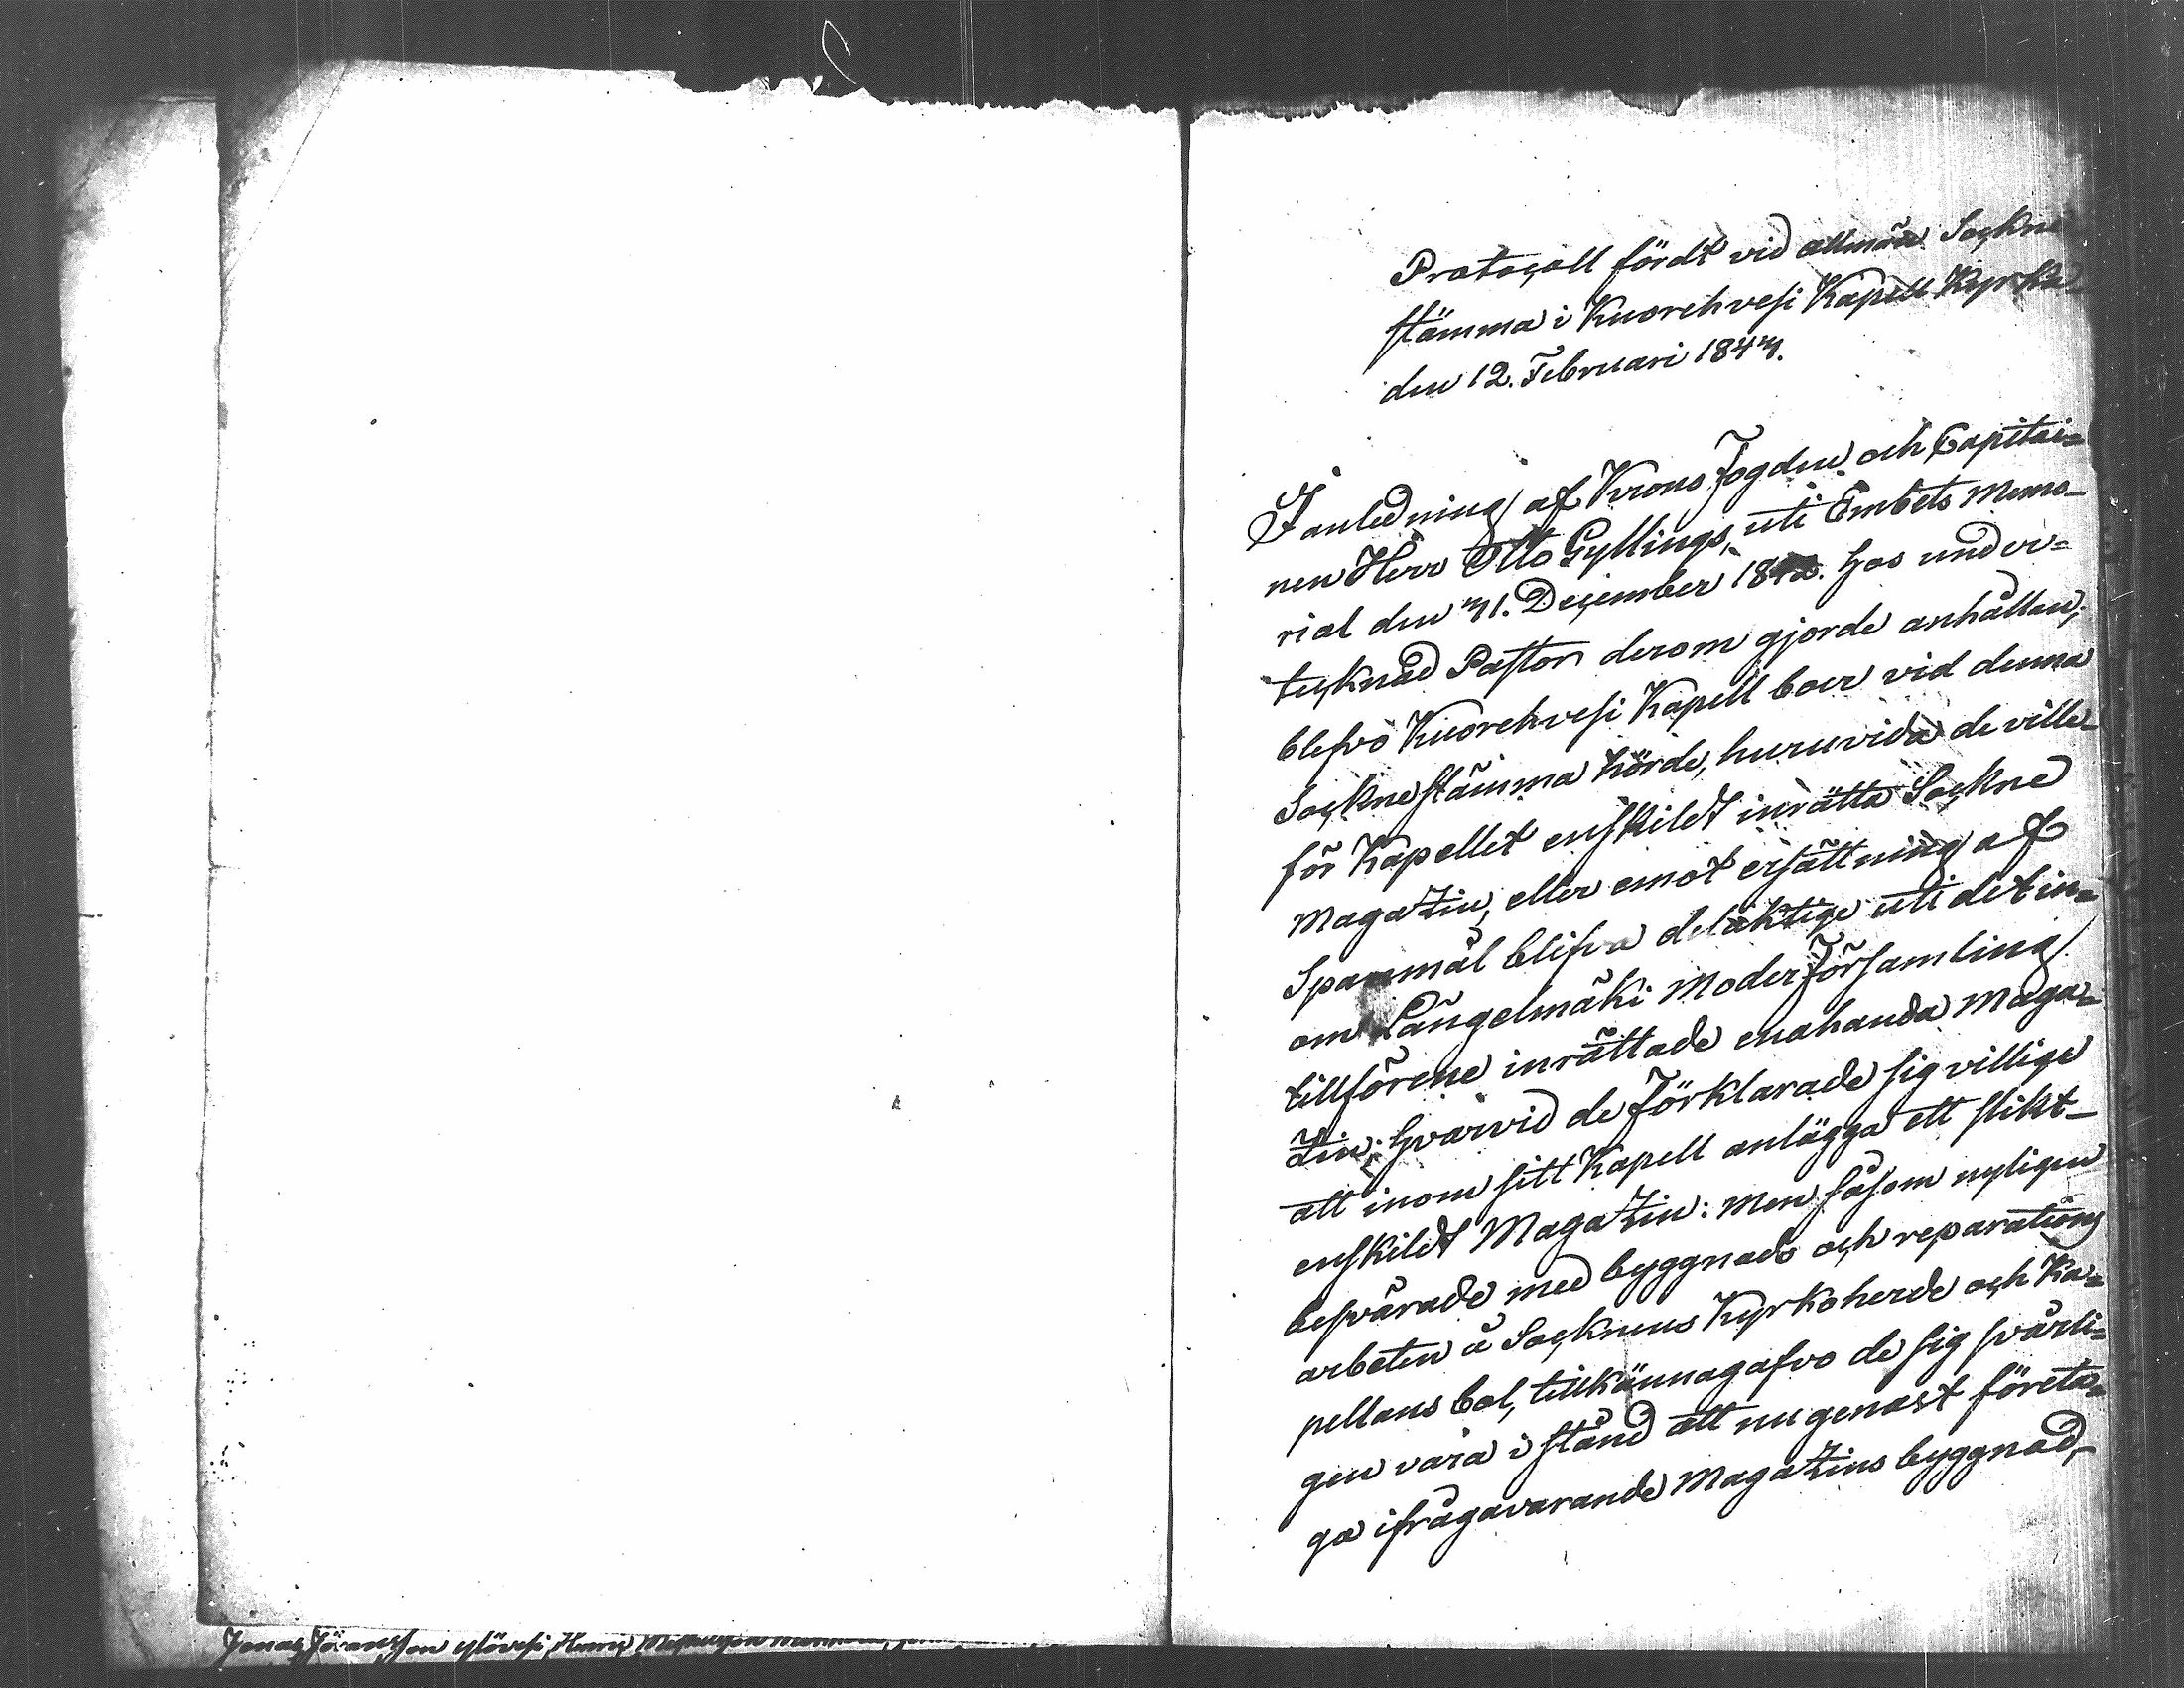 Protocoll fördt vid allmän Sockne
stämma i Kuorehvesi Kapell Kyrka
den 12. Februari 1843.
I anledning af Krono Fogden och Capitai=
nen Herr Otto Gyllings, uti Embets Memo-
rial den 31. December 1842. hos under=
tecknad Pastor derom gjorde anhållan,
blefvo Kuorehvesi Kapell boer vid denna
Sockne stämma hörde, huruvida de ville
för Kapellet enskildt inrätta Sockne
Magazin, eller emot ersättning af
Spanmål blifva delaktige uti det in=
om Längelmäki Moder Församling
tillförene inrättade enahanda Maga=
zin; hvarvid de förklarade sig villige
att inom sitt Kapell anlägga ett slikt
enskildt Magazin: men såsom nyligen
besvärade med byggnads och reparations
arbeten å Socknens Kyrkoherde och Ka=
pellans bol, tillkännagafvo de sig svårli=
gen vara i stånd att nu genast företa=
ga ifrågavarande Magazins byggnad,
Jonas Göransson Ylövesi, Henric